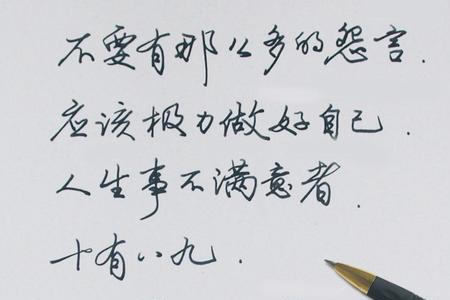 不要有那么多的怨言.
应该极力做好自己.
人生事不满意者.
十有八九.